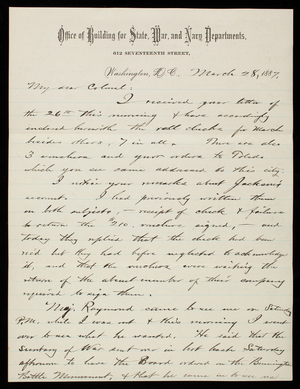 Office of Building for State, War, and Navy Departments,
612 SEVENTEENTH STREET,
Washington, D.C. March 28, 1887.
My dear Colonel:
I received your letter of
the 26th this morning & have accordingly
enclosed herewith the checks for March
besides others, 7 in all. There are also
3 vouchers and your orders to Toledo
which you see came addressed to this city.
I notice your remarks about Jackson's
account. I had previously written them
on both subjects, — receipt of check & failure
to return the voucher signed, — and
today they replied that the check had been
rec'd but they had before neglected to acknowledge
it, and that the vouchers were waiting the
return of the absent member of their company
required to sign them.
Maj. Raymond came to see me on Saturday
P.M. while I was out & this morning I went
over to see what he wanted. He said that the
Secretary of War sent me in last back Saturday
afternoon to have the Board rec'd on the Bennington
Battle Monument, & that he came in to see me